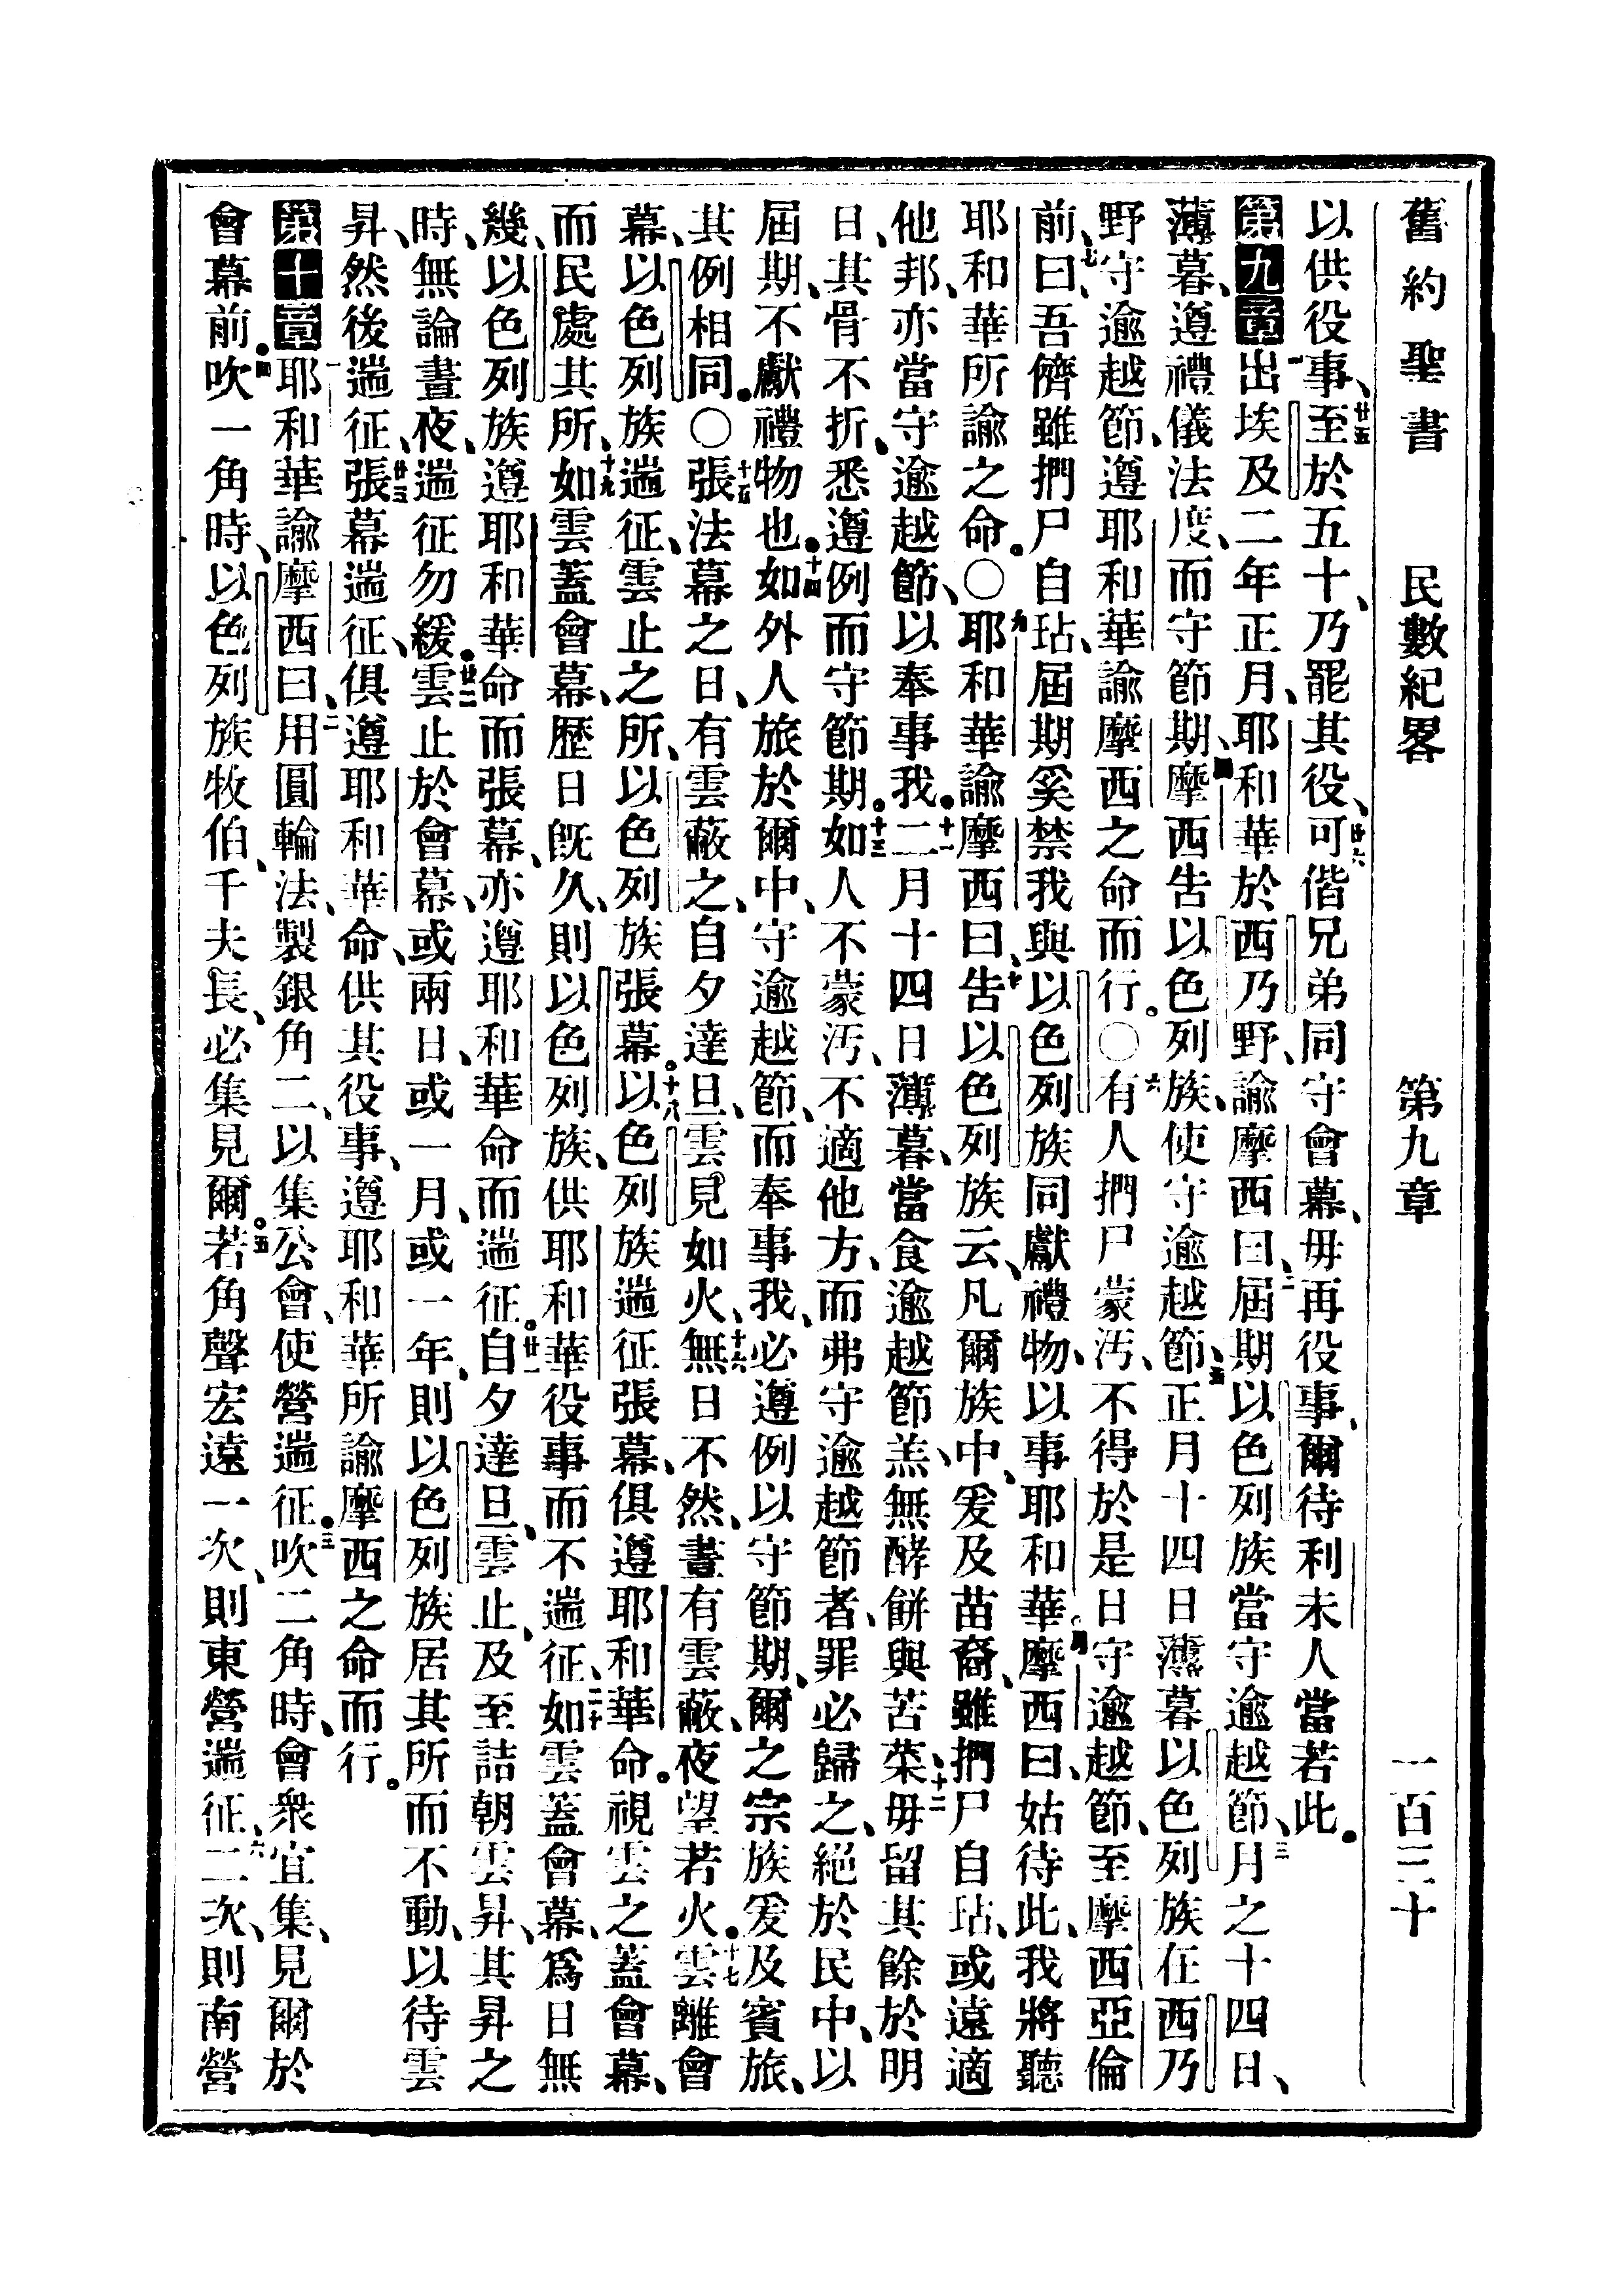 舊約聖書 民數紀畧 第九章 一百三十
以供役事、廿五至於五十、乃罷其役、廿六可偕兄弟同守會幕、毋再役事、爾待利未人當若此。
第九章 一出埃及二年正月、耶和華於西乃野、諭摩西曰、二屆期以色列族當守逾越節、三月之十四日、
薄暮、遵禮儀法度、而守節期、四摩西告以色列族、使守逾越節、五正月十四日薄暮以色列族在西乃
野守逾越節、遵耶和華諭摩西之命而行。○六有人捫尸蒙污、不得於是日守逾越節、至摩西亞倫
前、七曰、吾儕雖捫尸自玷、屆期奚禁我與以色列族同獻禮物、以事耶和華。八摩西曰、姑待此、我將聽
耶和華所諭之命。○九耶和華諭摩西曰、十告以色列族云、凡爾族中、爰及苗裔、雖捫尸自玷、或遠適
他邦、亦當守逾越節、以奉事我。十一二月十四日薄暮、當食逾越節羔、無酵餅與苦菜、十二毋留其餘於明
日、其骨不折、悉遵例而守節期。十三如人不蒙污、不適他方、而弗守逾越節者、罪必歸之、絕於民中、以
屆期、不獻禮物也。十四如外人旅於爾中、守逾越節、而奉事我、必遵例以守節期、爾之宗族爰及賓旅、
其例相同。○十五張法幕之日、有雲蔽之、自夕達旦、雲見如火、十六無日不然、晝有雲蔽、夜望若火。十七雲離會
幕、以色列族遄征、雲止之所、以色列族張幕。十八以色列族遄征張幕、俱遵耶和華命。視雲之蓋會幕、
而民處其所、十九如雲蓋會幕、歷日旣久、則以色列族、供耶和華役事而不遄征、二十如雲蓋會幕、爲日無
幾、以色列族遵耶和華命而張幕、亦遵耶和華命而遄征。廿一自夕達旦、雲止、及至詰朝雲昇、其昇之
時、無論晝夜、遄征勿緩。廿二雲止於會幕、或兩日、或一月、或一年、則以色列族居其所而不動、以待雲
昇、然後遄征、廿三張幕遄征、俱遵耶和華命、供其役事、遵耶和華所諭摩西之命而行。
第十章 一耶和華諭摩西曰、二用圓輪法、製銀角二、以集公會、使營遄征。三吹二角時、會衆宜集、見爾於
會幕前。四吹一角時、以色列族牧伯、千夫長、必集見爾。五若角聲宏遠一次、則東營遄征、六二次、則南營